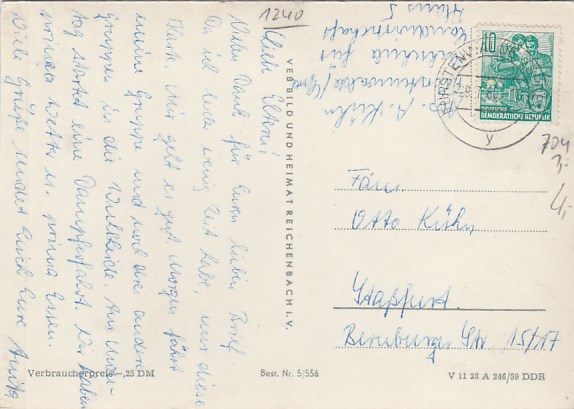 1240
Liebe Eltern!
Vielen Dank für Euren lieben Brief
Da ich leider wenig Zeit habe, nur diese
Karte. Mir geht es gut. Morgen fährt
meine Gruppe und noch drei andere
Gruppen in die Wuhlheide. Am
tag startet eine Dampferfahrt. Wir haben
prima Wetter u. prima Essen.
Viele Grüße sendet Euch Eure Anita
VEB BILD UND HEIMAT REICHENBACH I. V.
Abs. A. Kühn
für
Landwirtschaft
Haus 5
10
DEUTSCHE
DEMOKRATISCHE REPUBLIK
FÜRSTENWALDE
y
704
3,-
4,-
Fam.
Otto Kühn
Staßfurt
Bernburger Str. 15/17
Verbraucherpreis -,25 DM
Best. Nr. 5/556
V 11 28 A 246/59 DDR